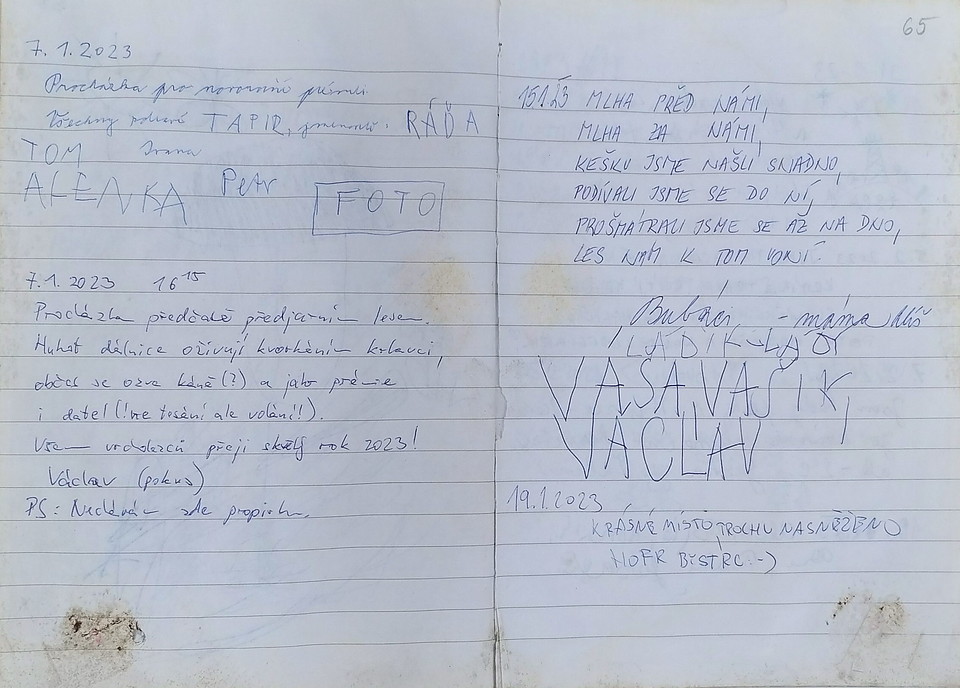 65
7.1.2023
Procházka pro novoroční
Všechny zdraví TAPIR, RÁĎA
TOM Ivana
ALENKA Petr
FOTO
7.1.2023 16 15
Procházka předčasně předjarním lesem.
Hukot dálnice oživují krkavci,
občas se ozve káně(?) a jako prémie
i datel (!ne tesání ale volání!).
Všem vrcholazcům přeji skvělý rok 2023!
Václav (pokus)
PS: Nechávám zde propisku.
15.1.23 MLHA PŘED NÁMI,
MLHA ZA NÁMI,
KEŠKU JSME NAŠLI SNADNO,
PODÍVALI JSME SE DO NÍ,
PROŠMÁTRALI JSME SE AŽ NA DNO,
LES NÁM K TOM VONÍ.
Bubáci - máma
LADÍK-LAĎ
VÁŠA, VAŠÍK,
VÁCLAV
19.1.2023
KRÁSNÉ MÍSTO, TROCHU NASNĚŽENO
HOFR BYSTRC :-)